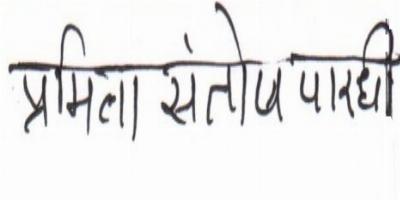 प्रमिला संतोष पारधी